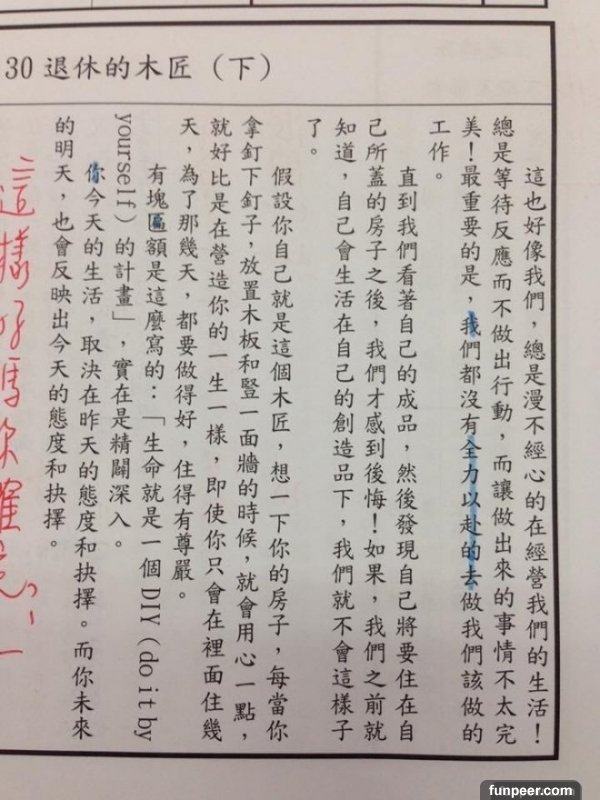 30 退休的木匠（下）
這也好像我們，總是漫不經心的在經營我們的生活！
總是等待反應而不做出行動，而讓做出來的事情不太完
美！最重要的是，我們都沒有全力以赴的去做我們該做的
工作。
直到我們看著自己的成品，然後發現自己將要住在自
己所蓋的房子之後，我們才感到後悔！如果，我們之前就
知道，自己會生活在自己的創造品下，我們就不會這樣子
了。
假設你自己就是這個木匠，想一下你的房子，每當你
拿釘下釘子，放置木板和豎一面牆的時候，就會用心一點，
就好比是在營造你的一生一樣，即使你只會在裡面住幾
天，為了那幾天，都要做得好，住得有尊嚴。
有塊匾額是這麼寫的：「生命就是一個DIY（do it by
yourself）的計畫」，實在是精闢深入。
你今天的生活，取決在昨天的態度和抉擇。而你未來
的明天，也會反映出今天的態度和抉擇。
這樣好嗎你確定
funpeer.com